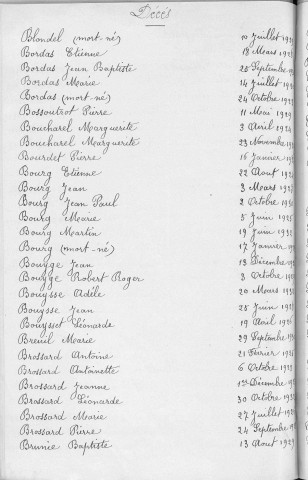 Décès
Blondel (mort-né) 10 Juillet
Bordas Etienne 18 Mars
Bordas Jean Baptiste 25 Septembre
Bordas Marie 14 Juillet
Bordas (mort-né) 24 Octobre
Bossoutrot Pierre 11 Mai 1929
Boucharel Marguerite 3 Avril
Boucharel Marguerite 23 Novembre
Bourdet Pierre 16 Janvier
Bourg Etienne 22 Aout
Bourg Jean 3 Mars
Bourg Jean Paul 2 Octobre
Bourg Marie 5 Juin
Bourg Martin 19 Juin
Bourg (mort-né) 17 Janvier
Bouyge Jean 13 Décembre
Bouyge Robert Roger 3 Octobre
Bouysse Adèle 20 Mars
Bouysse Jean 25 Juin
Bouysset Léonarde 19 Avril
Breuil Marie 29 Septembre
Brossard Antoine 21 Février
Brossard Antoinette 6 Octobre
Brossard Jeanne 1er Décembre
Brossard Léonarde 30 Octobre
Brossard Marie 27 Juillet
Brossard Pierre 24 Septembre
Brunie Baptiste 13 Aout 1929